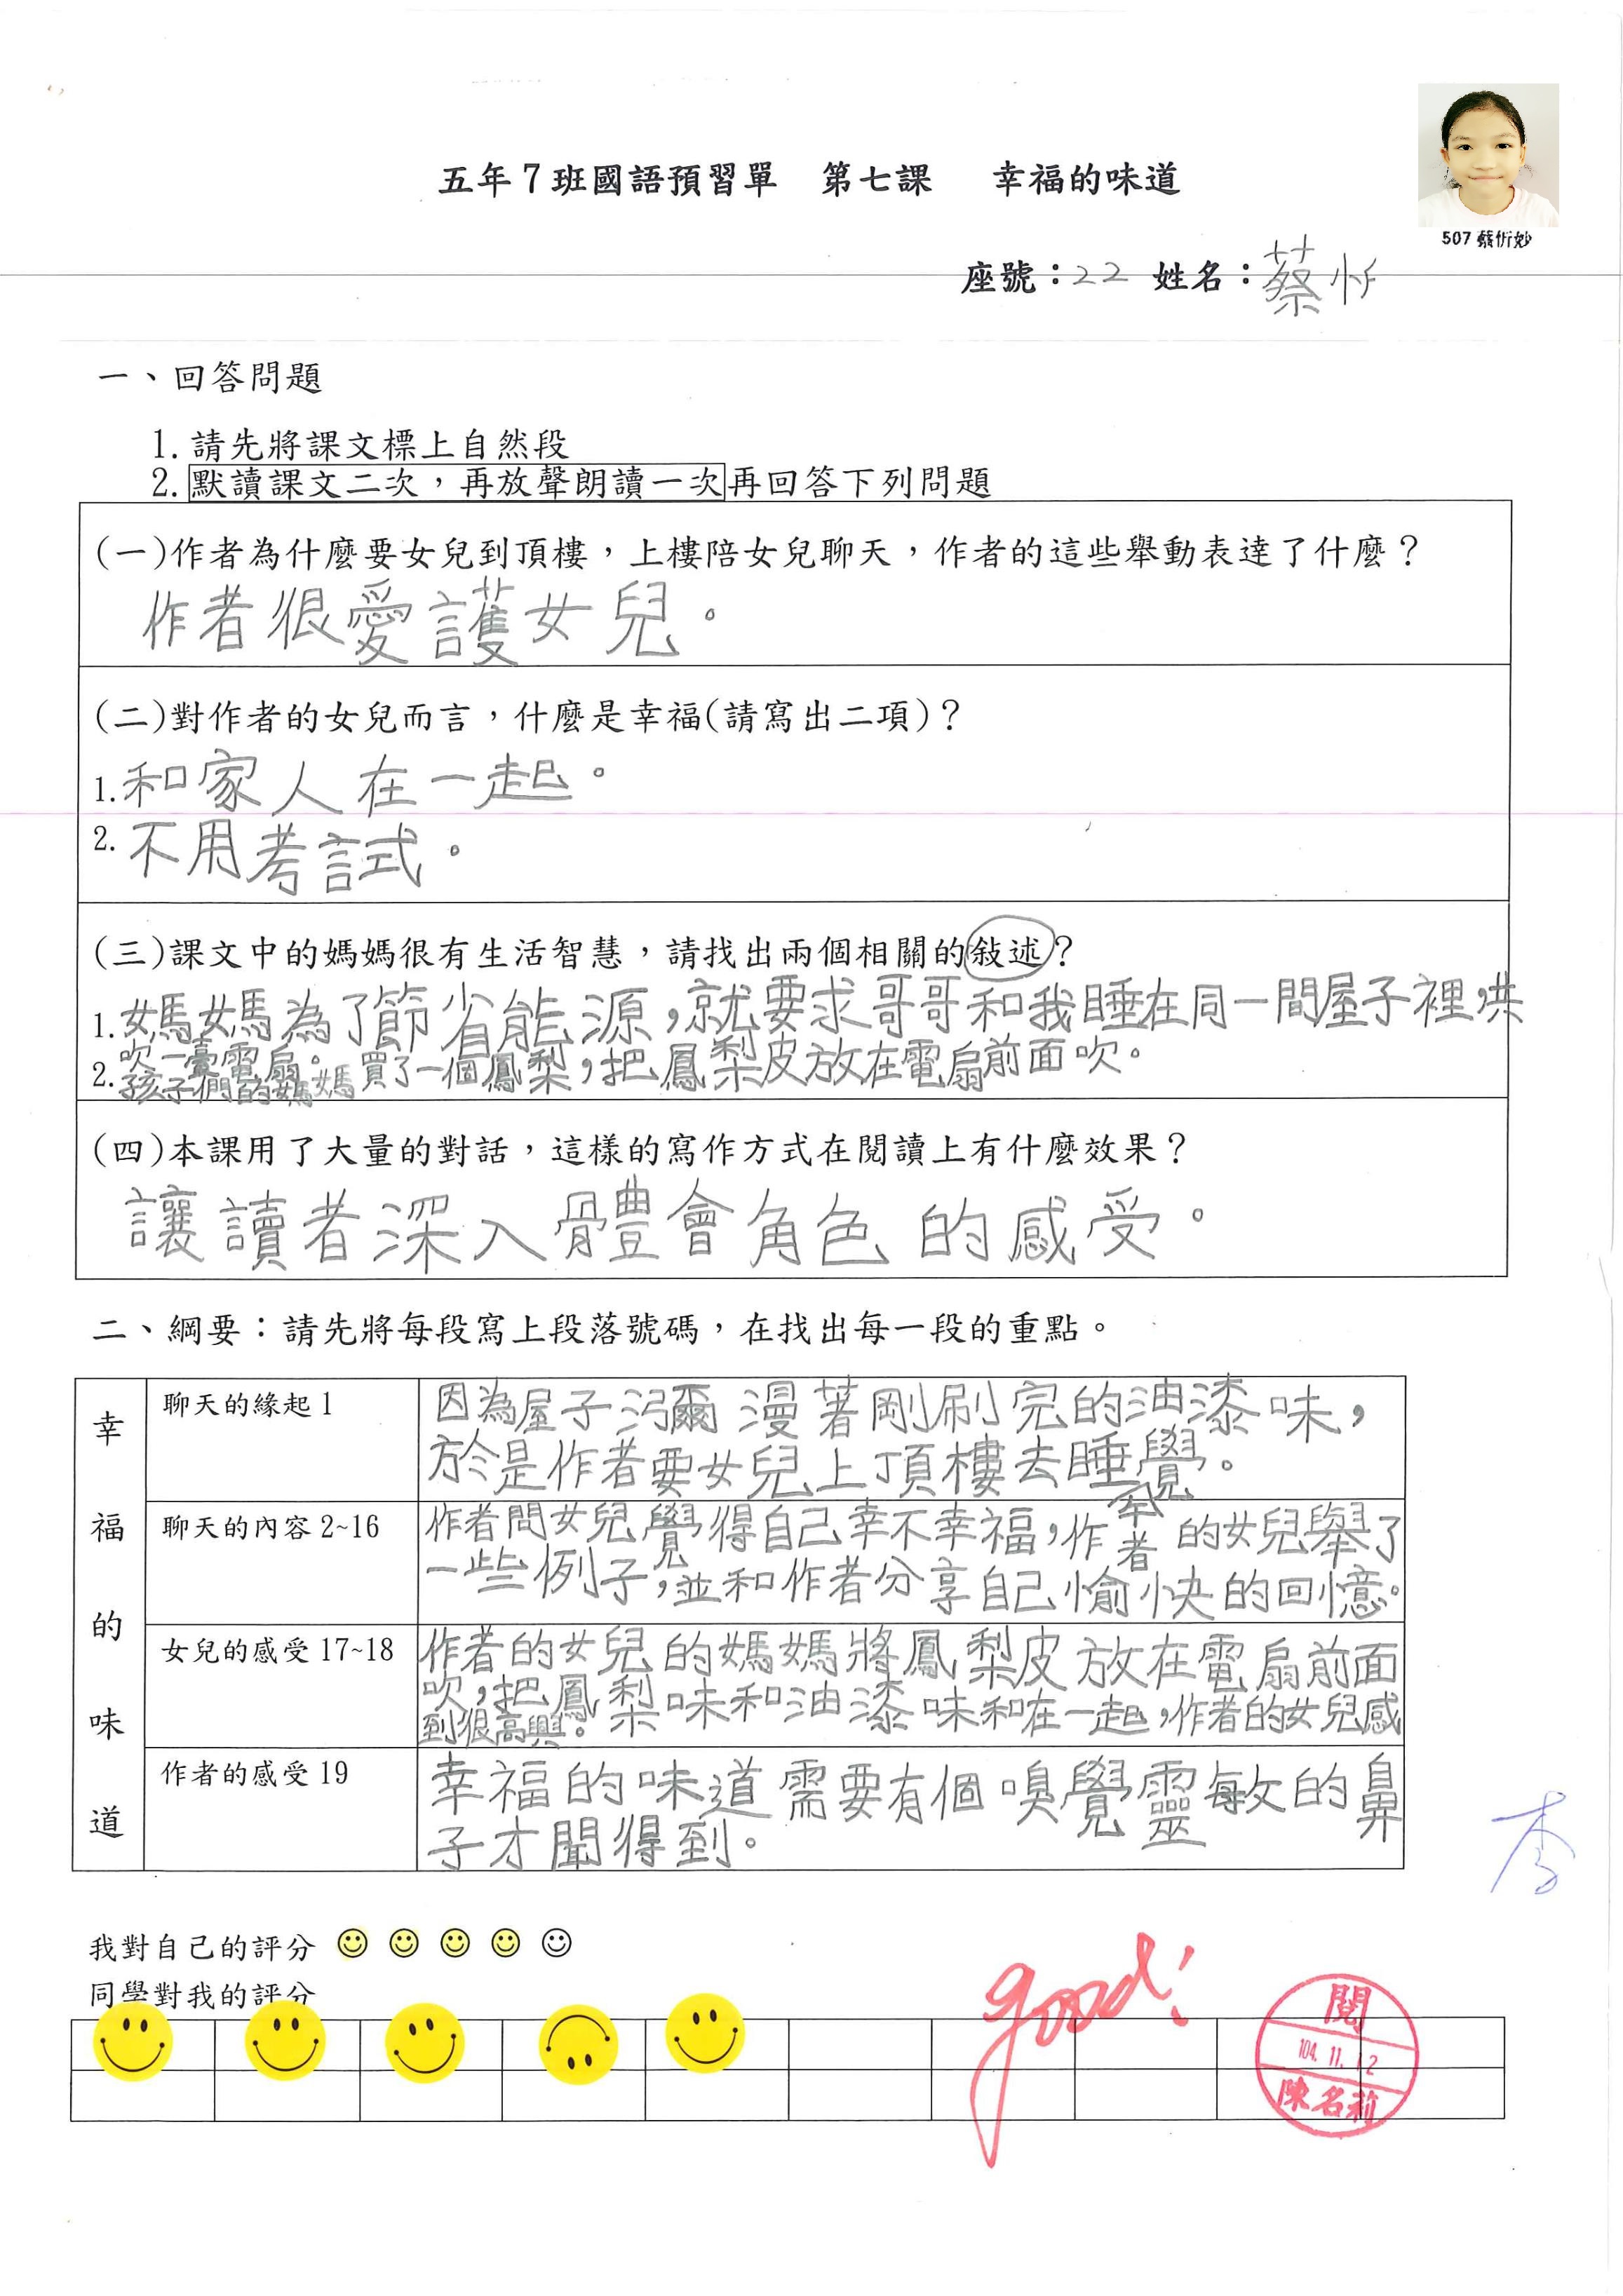 五年7班國語預習單 第七課 幸福的味道
507 蔡忻妙
座號：22 姓名：蔡忻
一、回答問題
1.請先將課文標上自然段
2.默讀課文二次，再放聲朗讀一次再回答下列問題
(一)作者為什麼要女兒到頂樓，上樓陪女兒聊天，作者的這些舉動表達了什麼？
作者很愛護女兒。
(二)對作者的女兒而言，什麼是幸福(請寫出二項)？
1.和家人在一起。
2.不用考試。
(三)課文中的媽媽很有生活智慧，請找出兩個相關的敍述？
1.媽媽為了節省能源，就要求哥哥和我睡在同一間屋子裡，共
吹一臺電扇。
2.孩子們的媽媽買了一個鳳梨，把鳳梨皮放在電扇前面吹。
(四)本課用了大量的對話，這樣的寫作方式在閱讀上有什麼效果？
讓讀者深入體會角色的感受。
二、綱要：請先將每段寫上段落號碼，在找出每一段的重點。
幸福的味道
聊天的緣起 1
因為屋子瀰漫著剛刷完的油漆味，
於是作者要女兒上頂樓去睡覺。
聊天的內容 2~16
作者問女兒覺得自己幸不幸福，作者的女兒舉了
一些例子，並和作者分享自己愉快的回憶。
女兒的感受 17~18
作者的女兒的媽媽將鳳梨皮放在電扇前面
吹，把鳳梨味和油漆味和在一起，作者的女兒感
到很高興。
作者的感受 19
幸福的味道需要有個嗅覺靈敏的鼻
子才聞得到。
李
我對自己的評分
同學對我的評分
good!
閱
104.11.12
陳名莉